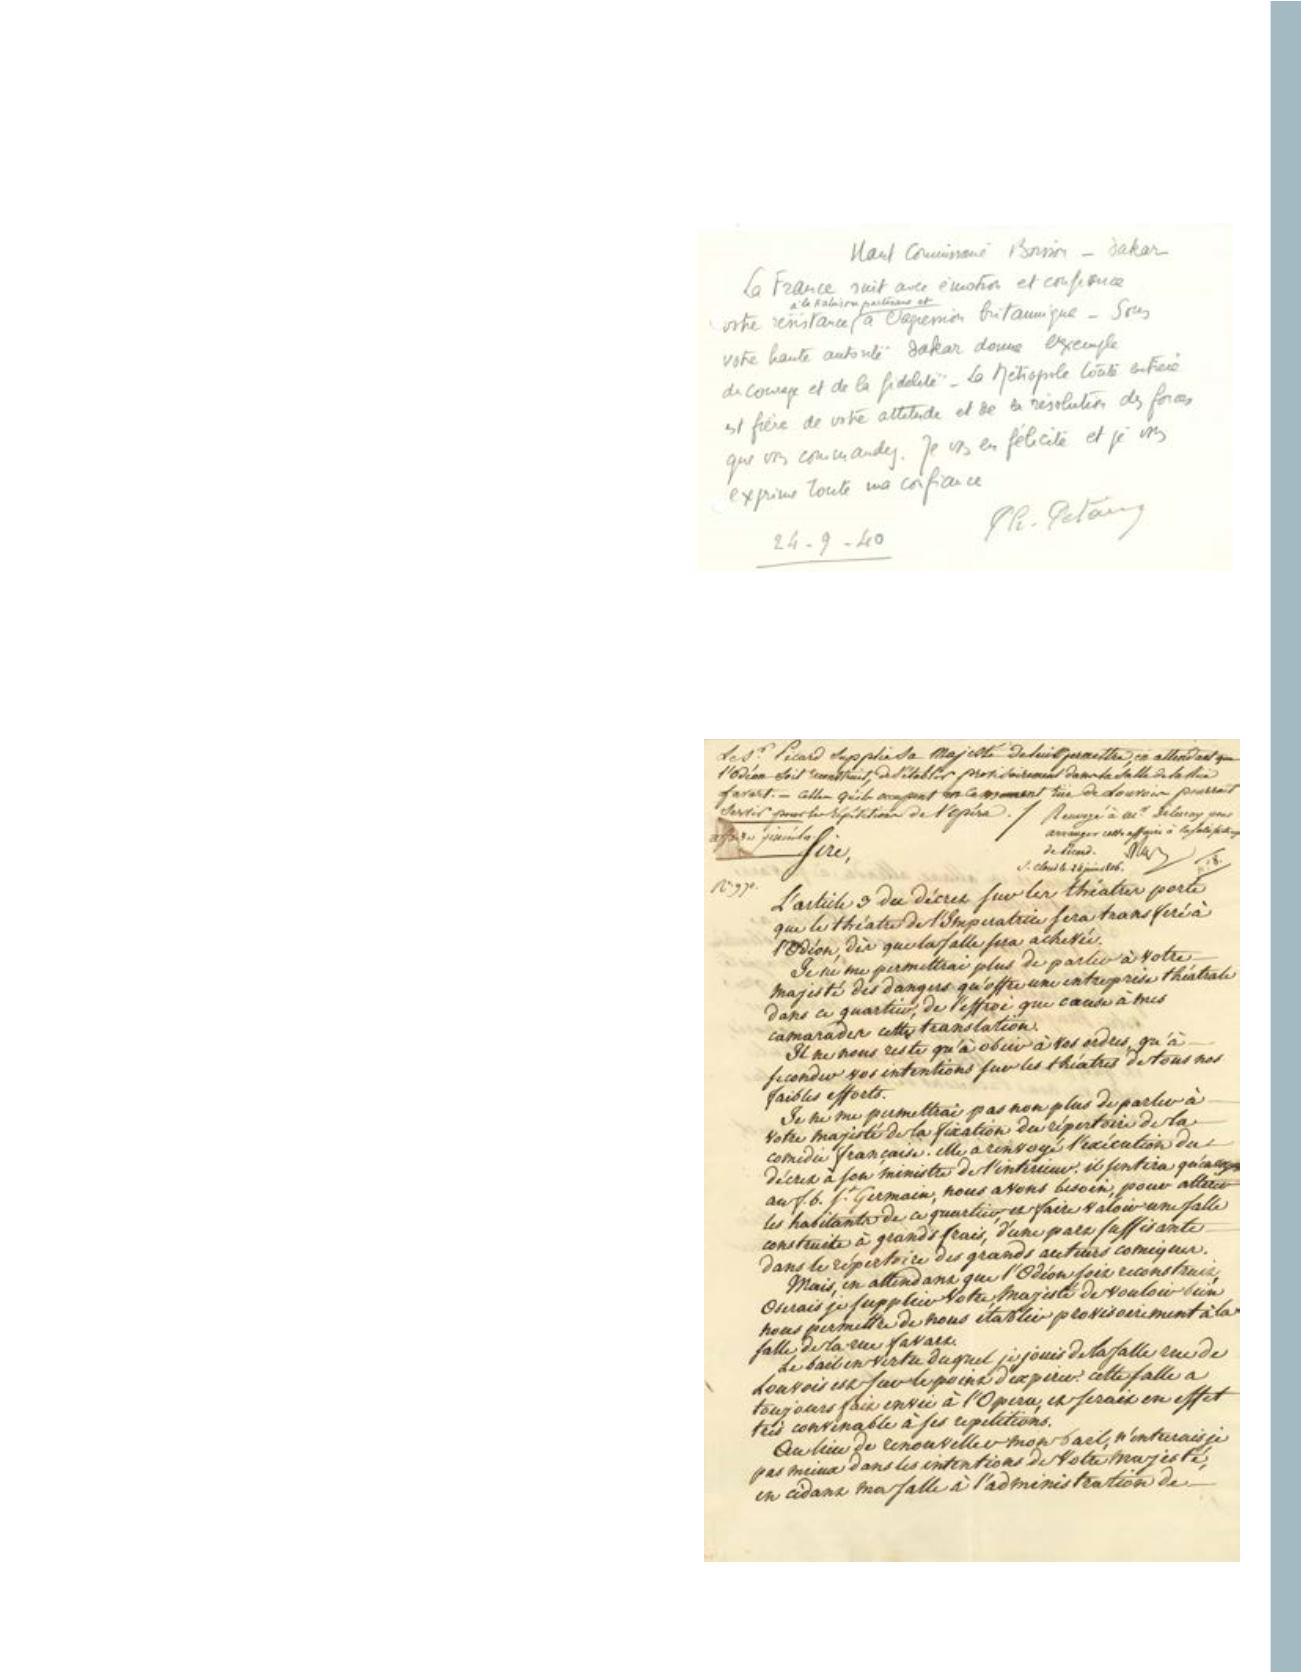 Haut Commissaire Boisson – Dakar
La France suit avec émotion et confiance
à la trahison partisane et
votre résistance à l'agression britannique – Sous
votre haute autorité Dakar donne l'exemple
du courage et de la fidélité – La Métropole toute entière
est fière de votre attitude et de la résolution des forces
que vs commandez. Je vs en félicite et je vs
exprime toute ma confiance
Ph. Pétain
24-9-40
Le Sr. Picard supplie Sa Majesté de lui permettre, en attendant que
l'Odéon soit reconstruit, de s'établir provisoirement dans la Salle de la Rue
favart. – celle qu'ils occupent en ce moment rue de Louvois pourrait
servir pour les répétitions de l'opéra.
Renvoyé à Mr.
arranger cette affaire à la satisfaction
de Picard.
St. Cloud le 28 juin 1806.
Sire,
No. 970.
L'article 3 du décret sur les théâtres porte
que le théâtre de l'Imperatrice sera transféré à
l'Odéon, dès que la salle sera achevée.
Je ne me permettrai plus de parler à Votre
majesté des dangers qu'offre une entreprise théatrale
dans ce quartier, de l'effroi que cause à mes
camarades cette translation.
Il ne nous reste qu'à obéir à vos ordres, qu'à
seconder vos intentions sur les théatres de tous nos
faibles efforts.
Je ne me permettrai pas non plus de parler à
votre majesté de la fixation du répertoire de la
comedie française. elle a renvoyé l'exécution du
décret à son ministre de l'intérieur: il sentira
au f.b. St. Germain, nous avons besoin, pour attirer
les habitants de ce quartier et faire valoir une salle
construite à grands frais, d'une part suffisante
dans le répertoire des grands auteurs comiques.
Mais, en attendant que l'Odéon soit reconstruit,
oserais je supplier Votre Majesté de vouloir bien
nous permettre de nous établir provisoirement à la
salle de la rue favart.
Le bail en vertu duquel je jouis de la salle rue de
Louvois est sur le point d'expirer: cette salle a
toujours fait envie à l'Opera, et serait en effet
très convenable à ses repetitions.
Au lieu de renouveller mon bail, n'entrerais je
pas mieux dans les intentions de Votre Majesté,
en cédant ma salle à l'administration de